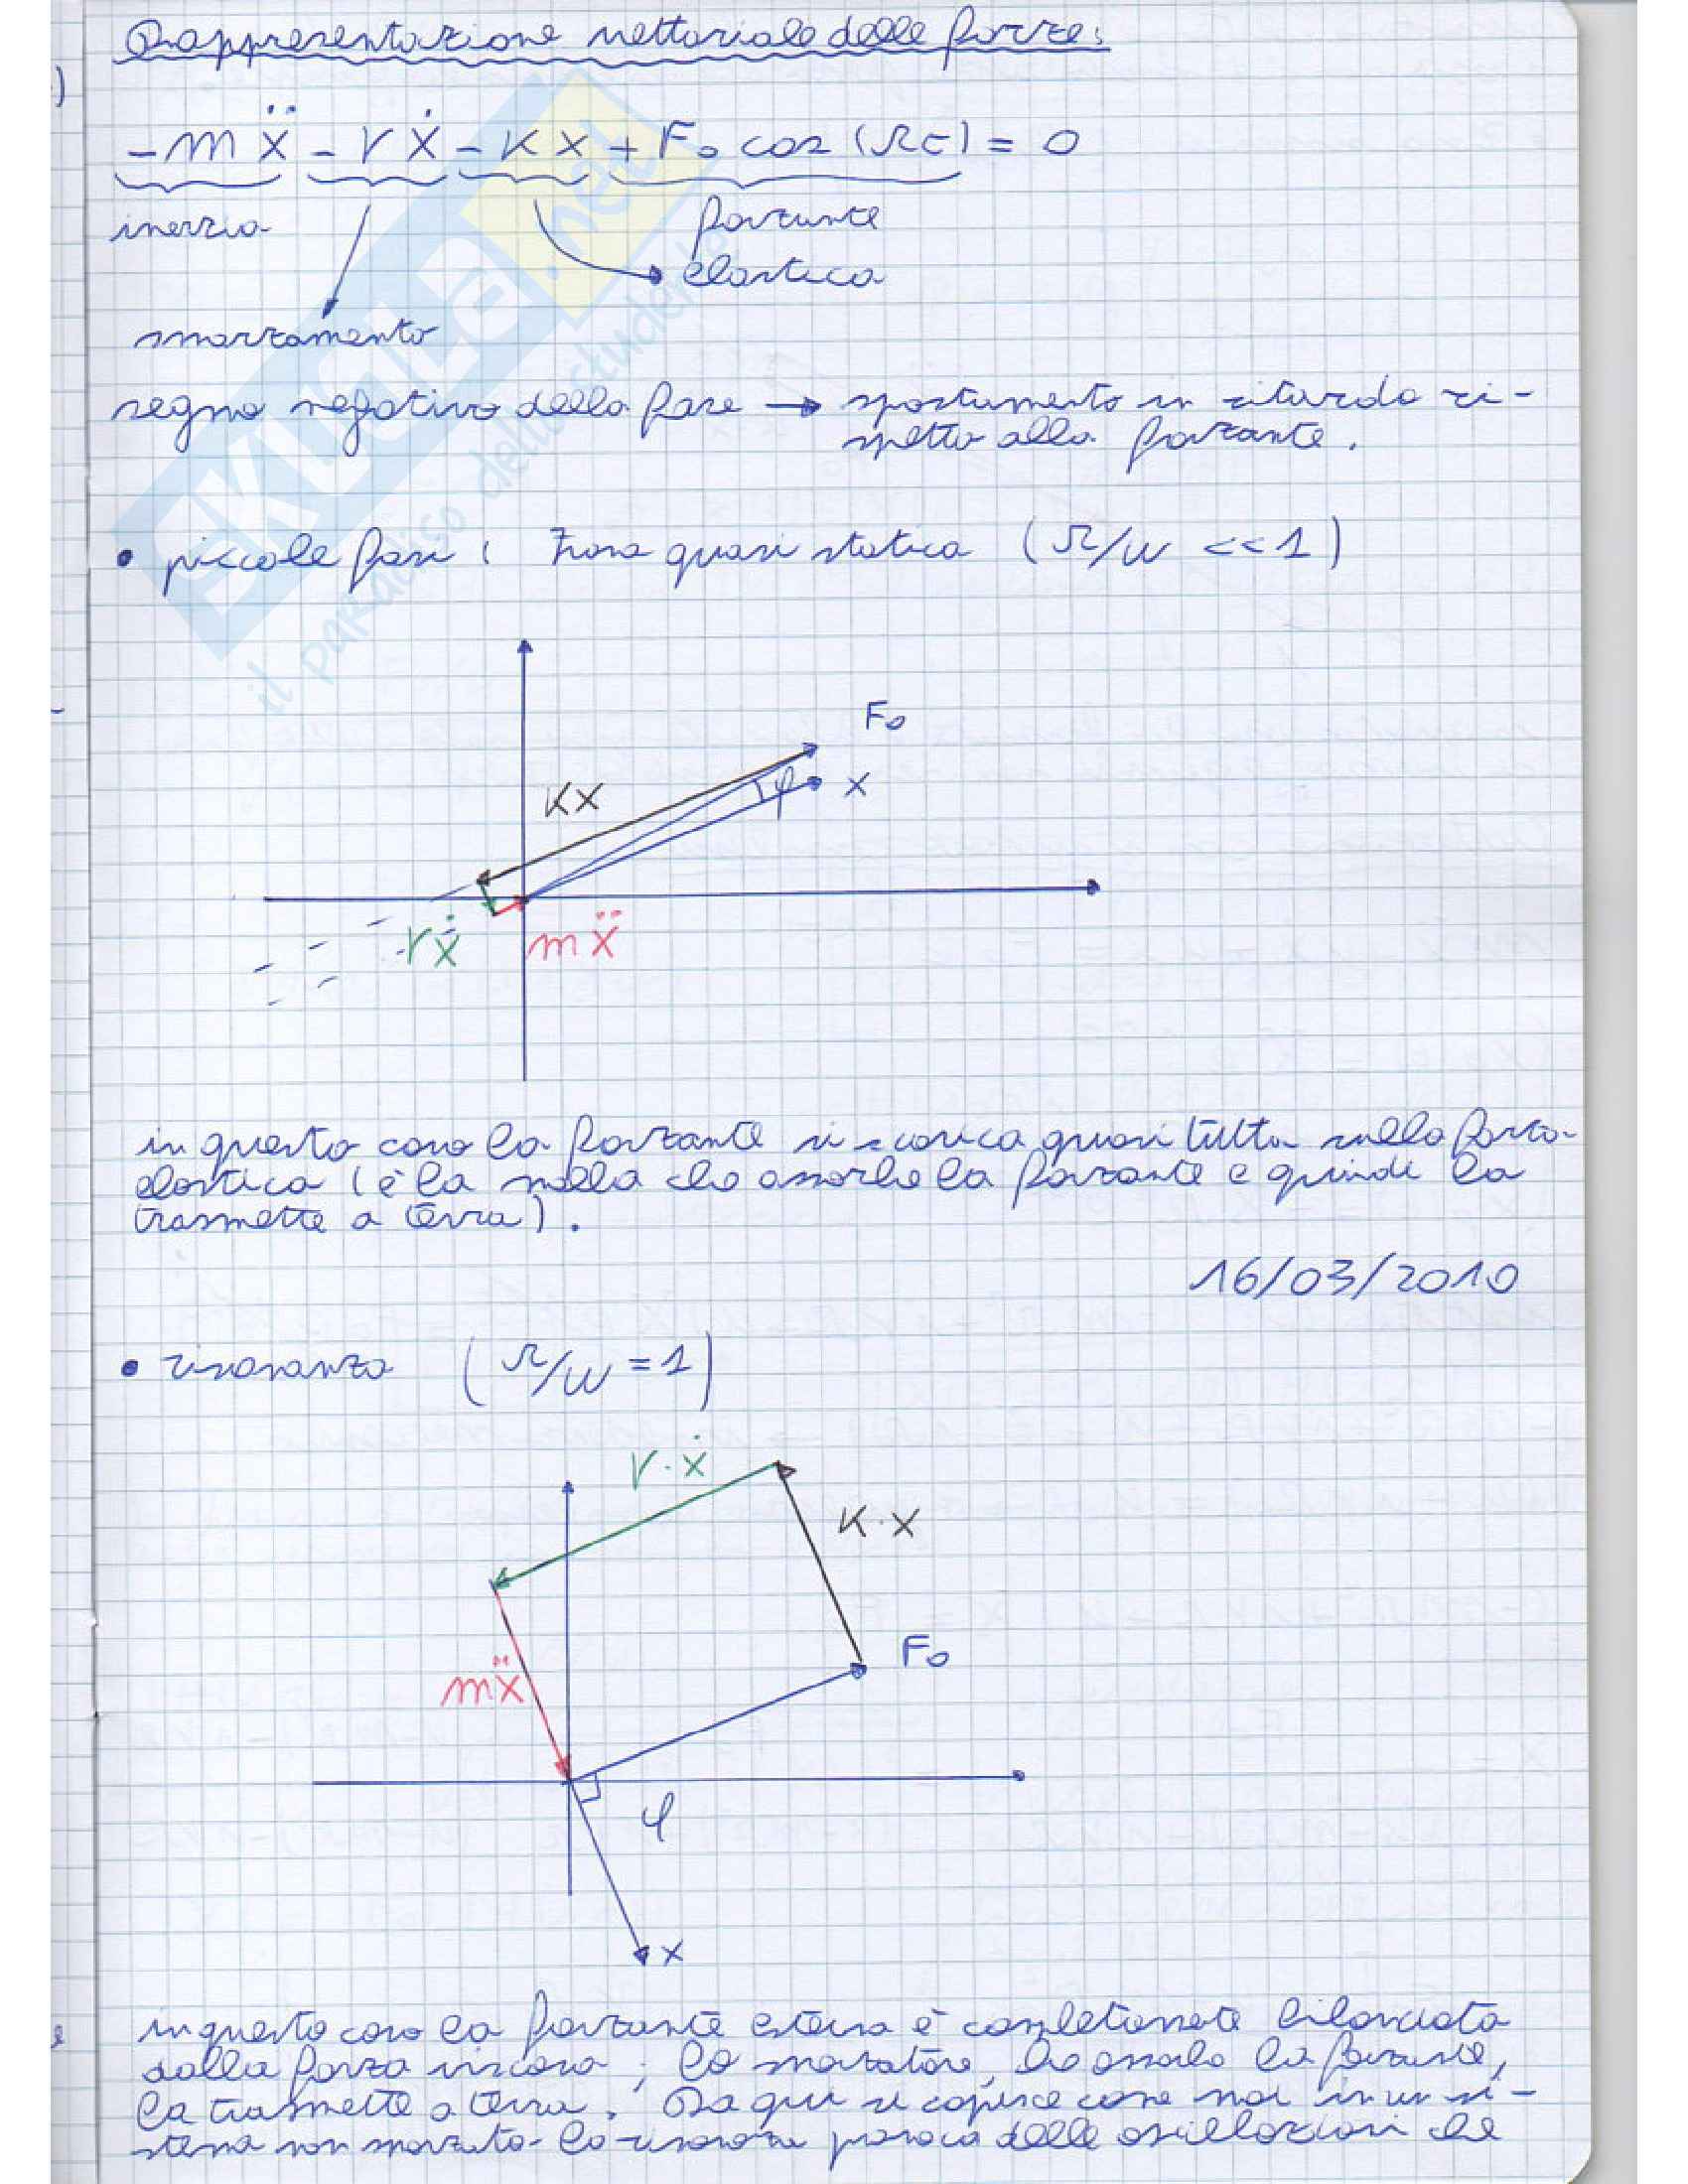 Rappresentazione vettoriale delle forze:
-mẍ -rẋ -Kx +F₀ cos(Ωt) = 0
inerzia
forzante
elastica
smorzamento
segno negativo della fase → spostamento in ritardo ri-
spetto alla forzante.
• piccole fasi: Zona quasi statica (Ω/ω <<1)
F₀
Kx
φ
x
rẋ
mẍ
in questo caso la forzante si scarica quasi tutta sulla forza
elastica (è la molla che assorbe la forzante e quindi la
trasmette a terra).
16/03/2010
• risonanza (Ω/ω = 1)
r·ẋ
K·x
F₀
mẍ
φ
x
in questo caso la forzante esterna è completamente bilanciata
dalla forza viscosa; lo smorzatore, assorbe la forzante,
la trasmette a terra. Da qui si capisce come mai in un si-
stema non smorzato la risonanza provoca delle oscillazioni che
SKUOLA.net
il paradiso dello studente